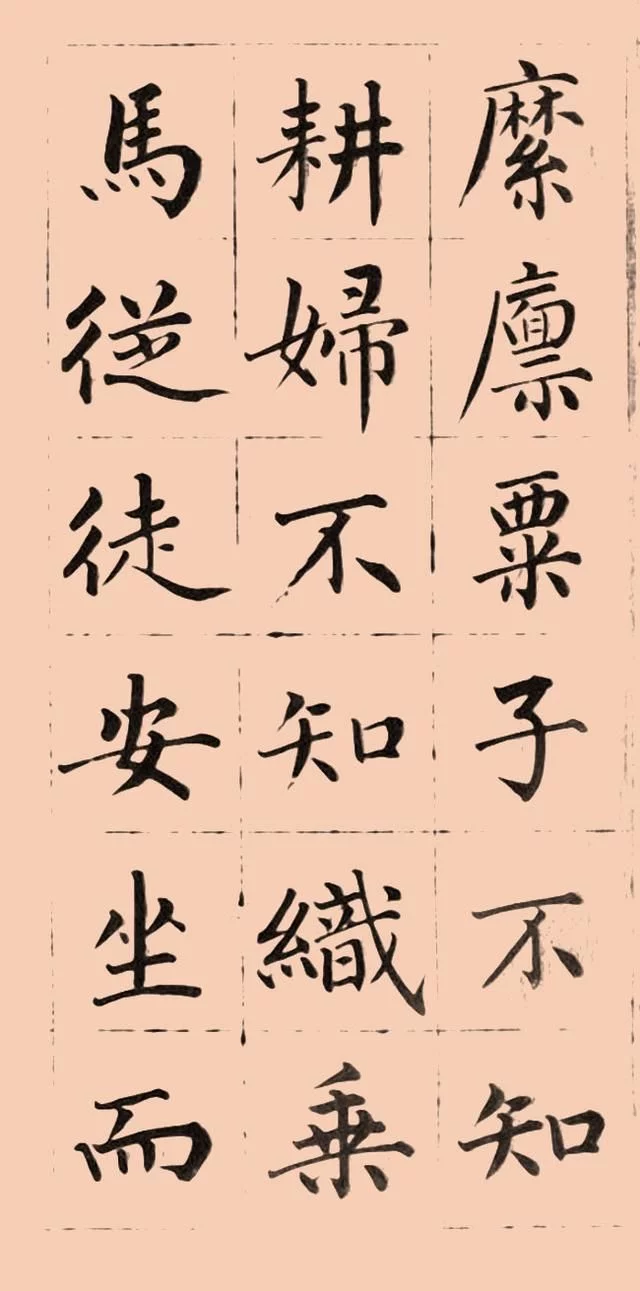 縻廩粟子不知
耕婦不知織乗
馬従徒安坐而